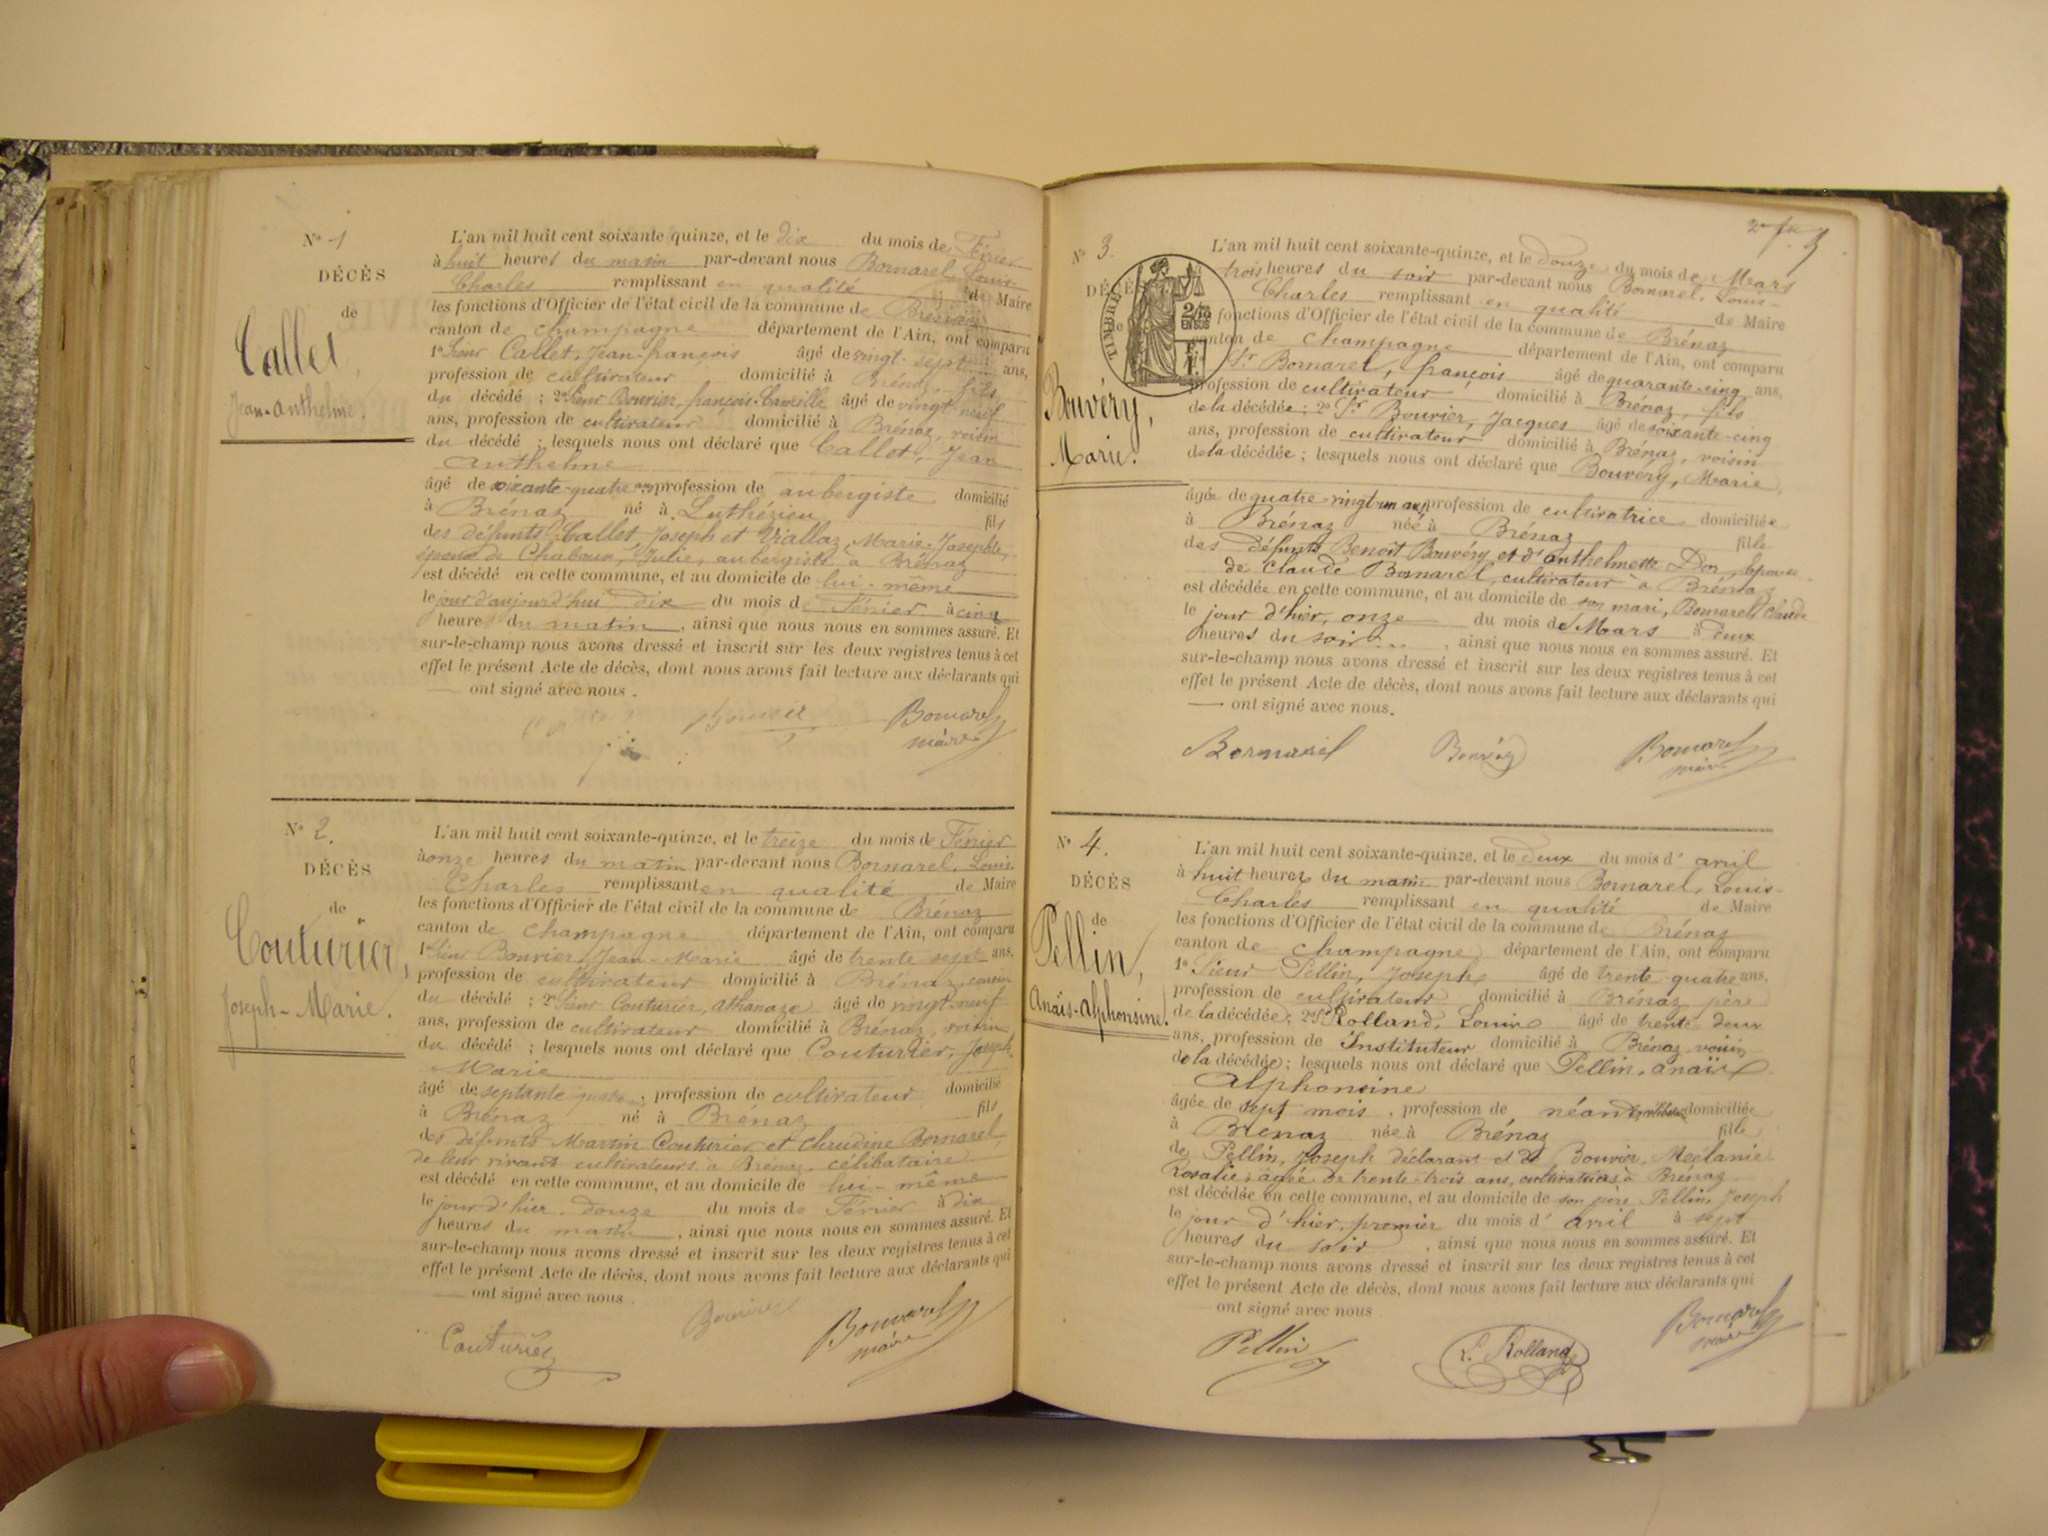 N° 1
DÉCÈS
de
Callet,
Jean-Anthelme.
L'an mil huit cent soixante-quinze, et le dix du mois de Février
à huit heures du matin par-devant nous Bornarel, Louis-
Charles remplissant en qualité de Maire
les fonctions d'Officier de l'état civil de la commune de Brénaz
canton de Champagne département de l'Ain, ont comparu
1° Sieur Callet, Jean-françois âgé de vingt-sept ans,
profession de cultivateur domicilié à Brénaz, fils
du décédé ; 2° Sieur Bouvier, françois âgé de vingt-neuf
ans, profession de cultivateur domicilié à Brénaz, voisin
du décédé ; lesquels nous ont déclaré que Callet, Jean
Anthelme
âgé de soixante-quatre ans profession de aubergiste domicilié
à Brénaz né à Luthézieu fils
des défunts Callet, Joseph et Viallaz, Marie-Josephte,
époux de Chaboux, Julie, aubergiste à Brénaz
est décédé en cette commune, et au domicile de lui-même
le jour d'aujourd'hui dix du mois de Février à cinq
heures du matin, ainsi que nous nous en sommes assuré. Et
sur-le-champ nous avons dressé et inscrit sur les deux registres tenus à cet
effet le présent Acte de décès, dont nous avons fait lecture aux déclarants qui
— ont signé avec nous.
Bouvier Bornarel
maire
N° 2.
DÉCÈS
de
Couturier,
Joseph-Marie.
L'an mil huit cent soixante-quinze, et le treize du mois de Février
à onze heures du matin par-devant nous Bornarel, Louis-
Charles remplissant en qualité de Maire
les fonctions d'Officier de l'état civil de la commune de Brénaz
canton de Champagne département de l'Ain, ont comparu
1° Sieur Bouvier, Jean-Marie âgé de trente sept ans,
profession de cultivateur domicilié à Brénaz, cousin
du décédé ; 2° Sieur Couturier, Athanaze âgé de vingt-neuf
ans, profession de cultivateur domicilié à Brénaz, voisin
du décédé ; lesquels nous ont déclaré que Couturier, Joseph-
Marie
âgé de septante, profession de cultivateur domicilié
à Brénaz né à Brénaz fils
des défunts Martin Couturier et Claudine Bornarel,
de leur vivant cultivateurs à Brénaz, célibataire
est décédé en cette commune, et au domicile de lui-même
le jour d'hier, douze du mois de Février à dix
heures du matin, ainsi que nous nous en sommes assuré. Et
sur-le-champ nous avons dressé et inscrit sur les deux registres tenus à cet
effet le présent Acte de décès, dont nous avons fait lecture aux déclarants qui
— ont signé avec nous.
Couturier Bouvier Bornarel
maire
N° 3.
DÉCÈS
TIMBRE
2/10
EN SUS
Bouvéry,
Marie.
L'an mil huit cent soixante-quinze, et le douze du mois de Mars
à trois heures du soir par-devant nous Bornarel, Louis-
Charles remplissant en qualité de Maire
fonctions d'Officier de l'état civil de la commune de Brénaz
canton de Champagne département de l'Ain, ont comparu
Sr Bornarel, françois âgé de quarante-cinq ans,
profession de cultivateur domicilié à Brénaz, fils
de la décédée ; 2° Sr Bouvier, Jacques âgé de soixante-cinq
ans, profession de cultivateur domicilié à Brénaz, voisin
de la décédée ; lesquels nous ont déclaré que Bouvéry, Marie,
âgée de quatre-vingt-un ans profession de cultivatrice domiciliée
à Brénaz née à Brénaz fille
des défunts Benoît Bouvéry et d'Anthelmette Don, épouse
de Claude Bornarel, cultivateur à Brénaz
est décédée en cette commune, et au domicile de son mari, Bornarel Claude
le jour d'hier, onze du mois de Mars à deux
heures du soir, ainsi que nous nous en sommes assuré. Et
sur-le-champ nous avons dressé et inscrit sur les deux registres tenus à cet
effet le présent Acte de décès, dont nous avons fait lecture aux déclarants qui
— ont signé avec nous.
Bornarel Bornarel
maire
N° 4.
DÉCÈS
de
Pellin,
Anaïs-Alphonsine.
L'an mil huit cent soixante-quinze, et le deux du mois d'avril
à huit heures du matin par-devant nous Bornarel, Louis-
Charles remplissant en qualité de Maire
les fonctions d'Officier de l'état civil de la commune de Brénaz
canton de Champagne département de l'Ain, ont comparu
1° Sieur Pellin, Joseph âgé de trente-quatre ans,
profession de cultivateur domicilié à Brénaz, père
de la décédée ; 2° Sr Rolland, Louis âgé de trente-deux
ans, profession de Instituteur domicilié à Brénaz, voisin
de la décédée ; lesquels nous ont déclaré que Pellin, Anaïs
Alphonsine
âgée de sept mois, profession de néant, célibataire domiciliée
à Brénaz née à Brénaz fille
de Pellin, Joseph déclarant et de Bouvier, Mélanie
Rosalie, âgée de trente-trois ans, cultivatrice à Brénaz
est décédée en cette commune, et au domicile de son père, Pellin, Joseph
le jour d'hier, premier du mois d'avril à sept
heures du soir, ainsi que nous nous en sommes assuré. Et
sur-le-champ nous avons dressé et inscrit sur les deux registres tenus à cet
effet le présent Acte de décès, dont nous avons fait lecture aux déclarants qui
ont signé avec nous
Pellin L. Rolland Bornarel
maire